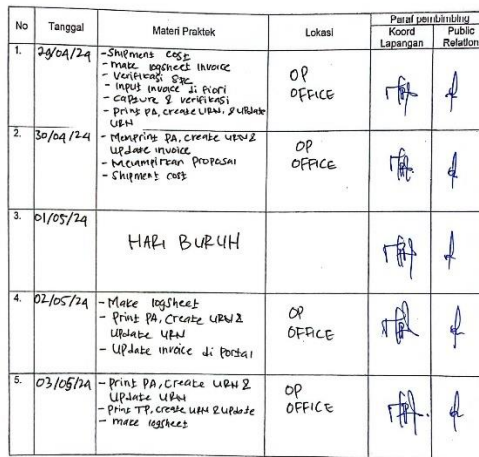 No Tanggal Materi Praktek Lokasi Paraf pembimbing
Koord Lapangan Public Relation
1. 29/04/24 - Shipment cost
- make logsheet invoice
- Verifikasi
- Input invoice di Fiori
- Capture & verifikasi
- Print PA, create URN, & Update
URN
OP
OFFICE
2. 30/04/24 - Menprint PA, create URN &
Update invoice
- Melampirkan Proposal
- Shipment cost
OP
OFFICE
3. 01/05/24 HARI BURUH
4. 02/05/24 - Make logsheet
- Print PA, Create URN &
Update URN
- Update invoice di Portal
OP
OFFICE
5. 03/05/24 - Print PA, Create URN &
Update URN
- Print TP, create URN & Update
- make logsheet
OP
OFFICE